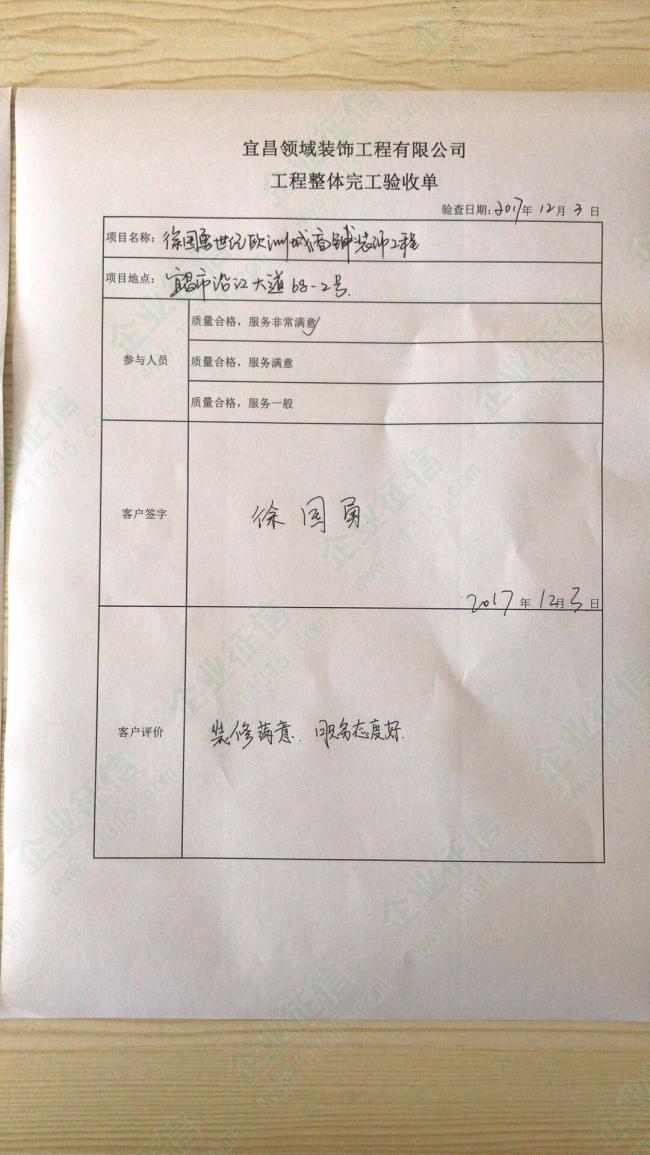 宜昌领域装饰工程有限公司
工程整体完工验收单
验查日期:2017年 12月 3 日
项目名称: 徐国勇世纪欧洲城商铺装饰工程
项目地点: 宜昌市沿江大道68-2号.
质量合格，服务非常满意
参与人员
质量合格，服务满意
质量合格，服务一般
客户签字
徐 国 勇
2017 年 12月 3 日
客户评价
装修满意. 服务态度好.
企业征信
www.11315.com